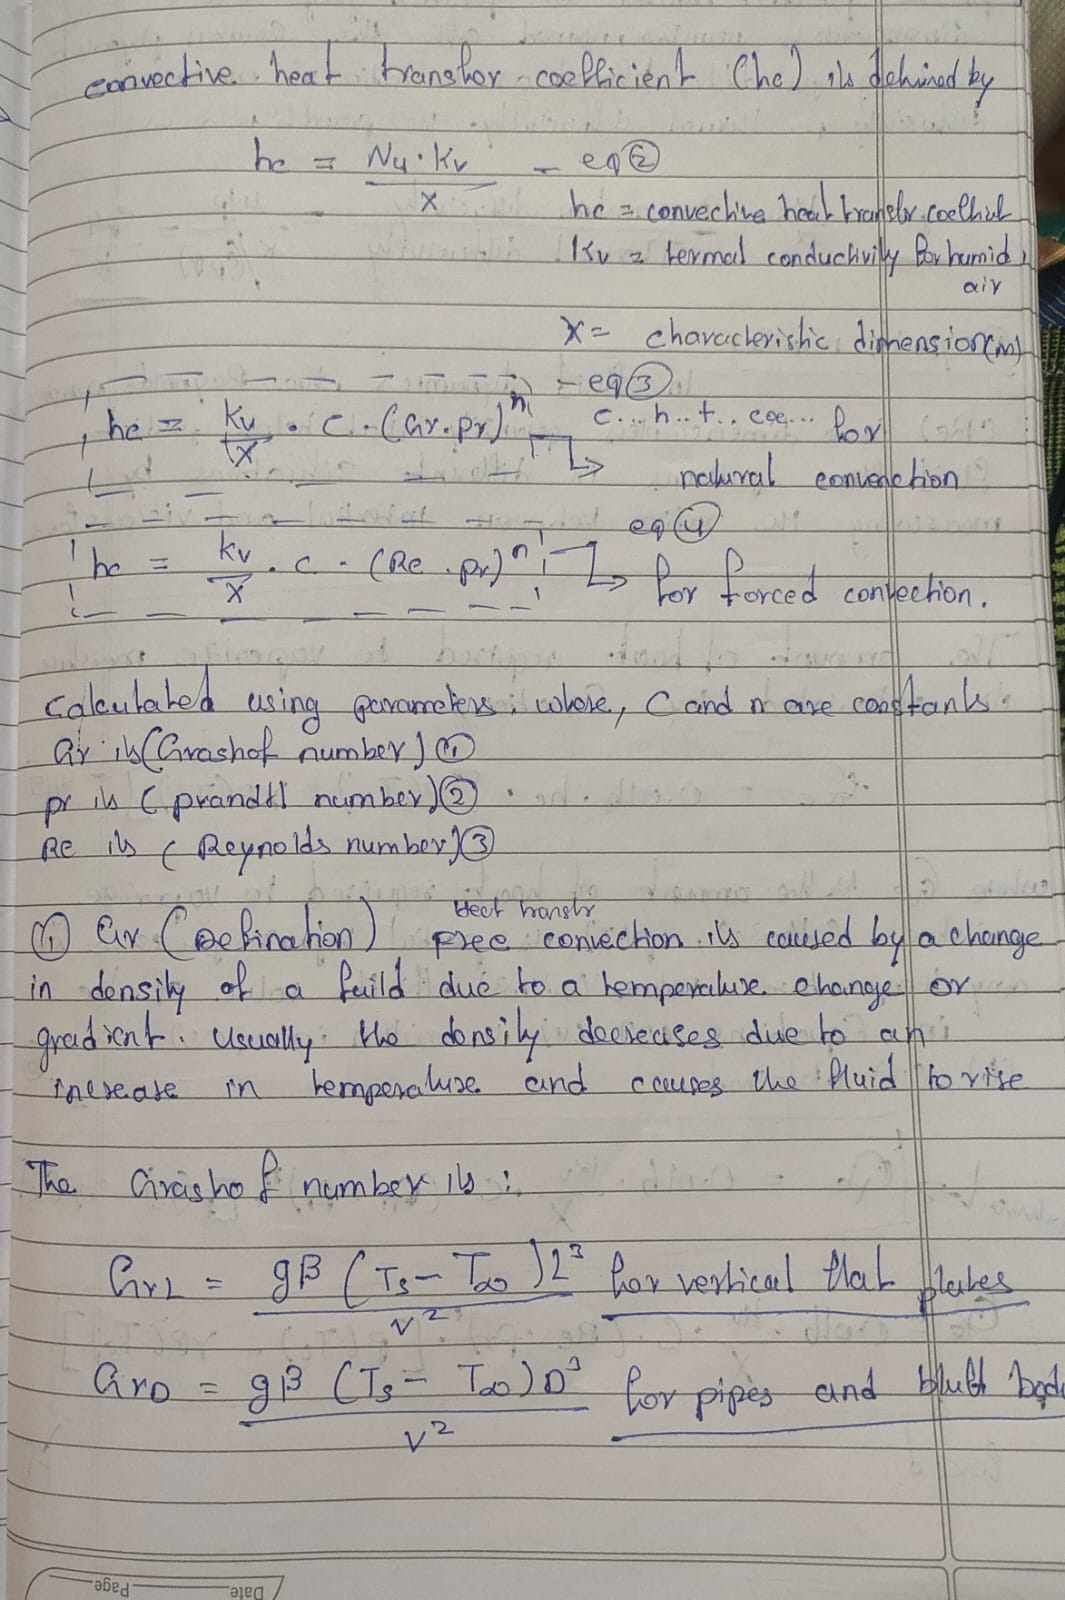 convective heat transfor coefficient (hc) is defined by
hc = Nu·Kv / x – eq②
hc = convective heat transfer coefficient
Kv = termal conductivity for humid
air
X = characteristic dimension (m)
– eq③
hc = Kv / X · C · (Gr·pr)^n c...h..t.. coe... for
natural convection
eq④
hc = Kv / X · C · (Re·pr)^n for forced convection.
Calculated using parameters; where, C and n are constants.
Gr is (Grashof number) ①
pr is (prandtl number) ②
Re is (Reynolds number) ③
Heat transfr
① Gr (Defination) free convection is caused by a change
in density of a fuild due to a temperature change or
gradient. Usually the density decreases due to an
increase in temperature and causes the fluid to rise
The Grashof number is :
GrL = gβ (Ts – T∞) L³ / v² for vertical flat plates
GrD = gβ (Ts – T∞) D³ / v² for pipes and bluff bod
Date Page